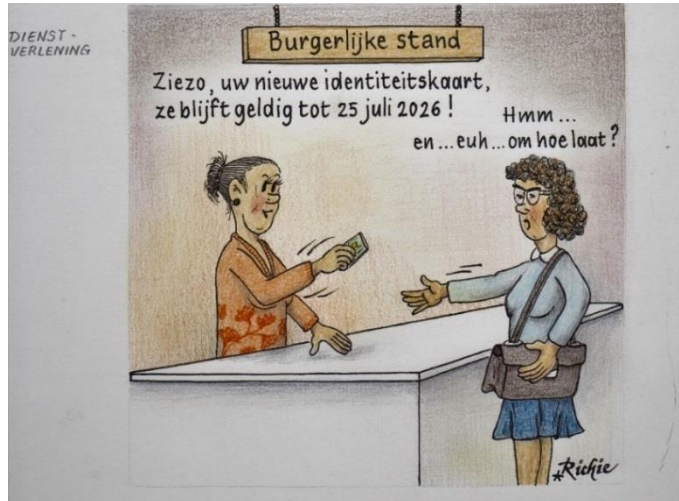 DIENST-
VERLENING
Burgerlijke stand
Ziezo, uw nieuwe identiteitskaart,
ze blijft geldig tot 25 juli 2026!
Hmm...
en...euh...om hoe laat?
*Richie